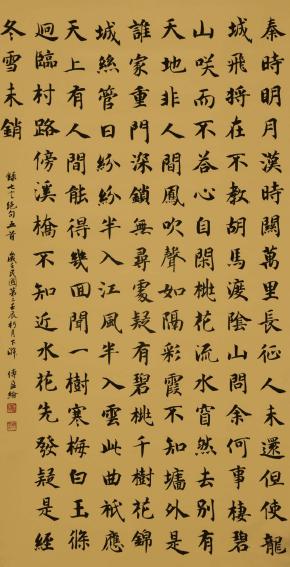 秦時明月漢時關萬里長征人未還但使龍
城飛將在不教胡馬渡陰山問余何事棲碧
山咲而不答心自閑桃花流水窅然去別有
天地非人間鳳吹聲如隔彩霞不知墻外是
誰家重門深鎖無尋處疑有碧桃千樹花錦
城絲管日紛紛半入江風半入雲此曲祇應
天上有人間能得幾回聞一樹寒梅白玉條
迥臨村路傍溪橋不知近水花先發疑是經
冬雪未銷
錄七言絕句五首 民國第 壬辰 月下澣